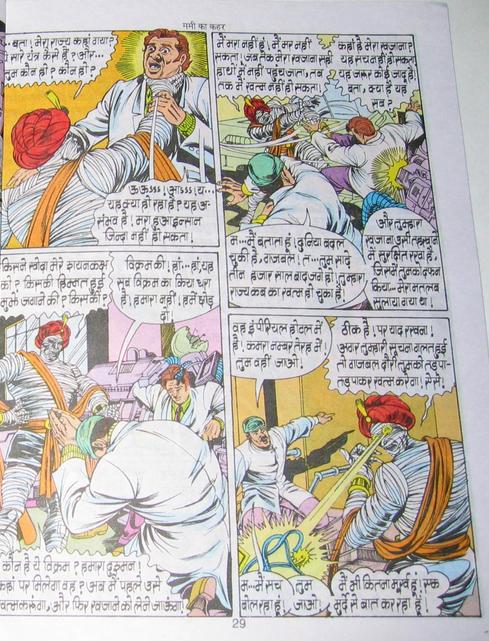 ममी का कहर
...बता! मेरा राज्य कहां गया?
सारे यंत्र कैसे हैं? और...
कौन हो? कौन हो?
ऊऽऽऽऽ! आऽऽऽ! य...
यह क्या हो रहा है? यह अ-
संभव है! मरा हुआ इन्सान
जिन्दा नहीं हो सकता!
मैं मरा नहीं हूं! मैं मर नहीं
सकता! जब तक मेरा खजाना सही
हाथों में नहीं पहुंच जाता, तब
तक मैं खत्म नहीं हो सकता!
कहां है मेरा खजाना?
यह सच नहीं हो सकता
यह जरूर कोई जादू है!
बता, क्या है यह
सब?
म...मैं बताता हूं! दुनिया बदल
चुकी है, गजबल! त...तुम साढ़े
तीन हजार साल बाद जगे हो! तुम्हारा
राज्य कब का खत्म हो चुका है!
और तुम्हारा
खजाना उसी तहखाने
में सुरक्षित रखा है,
जिसमें तुमको दफन
किया... मेरा मतलब
सुलाया गया था!
किसने खोदा मेरे शयनकक्ष
को? किसकी हिम्मत हुई
मुझे जगाने की? किसकी?
विक्रम की! हां-हां, यह
सब विक्रम का किया धरा
है! हमारा नहीं! हमें छोड़
दो!
कौन है ये विक्रम? हमारा दुश्मन!
कहां पर मिलेगा वह? अब मैं पहले उसे
खत्म करूंगा, और फिर खजाने को लेने जाऊंगा!
वह इंपीरियल होटल में
है! कमरा नम्बर तेरह में!
तुम वहीं जाओ!
ठीक है! पर याद रखना!
अगर तुम्हारी सूचना गलत हुई
तो गजबल दौरी तुमको तड़पा-
तड़पाकर खत्म करेगा! ऐसे!
म...मैं सच
बोल रहा हूं!
तुम
जाओ!
मैं भी कितना मूर्ख हूं! एक
मुर्दे से बात कर रहा हूं!
29